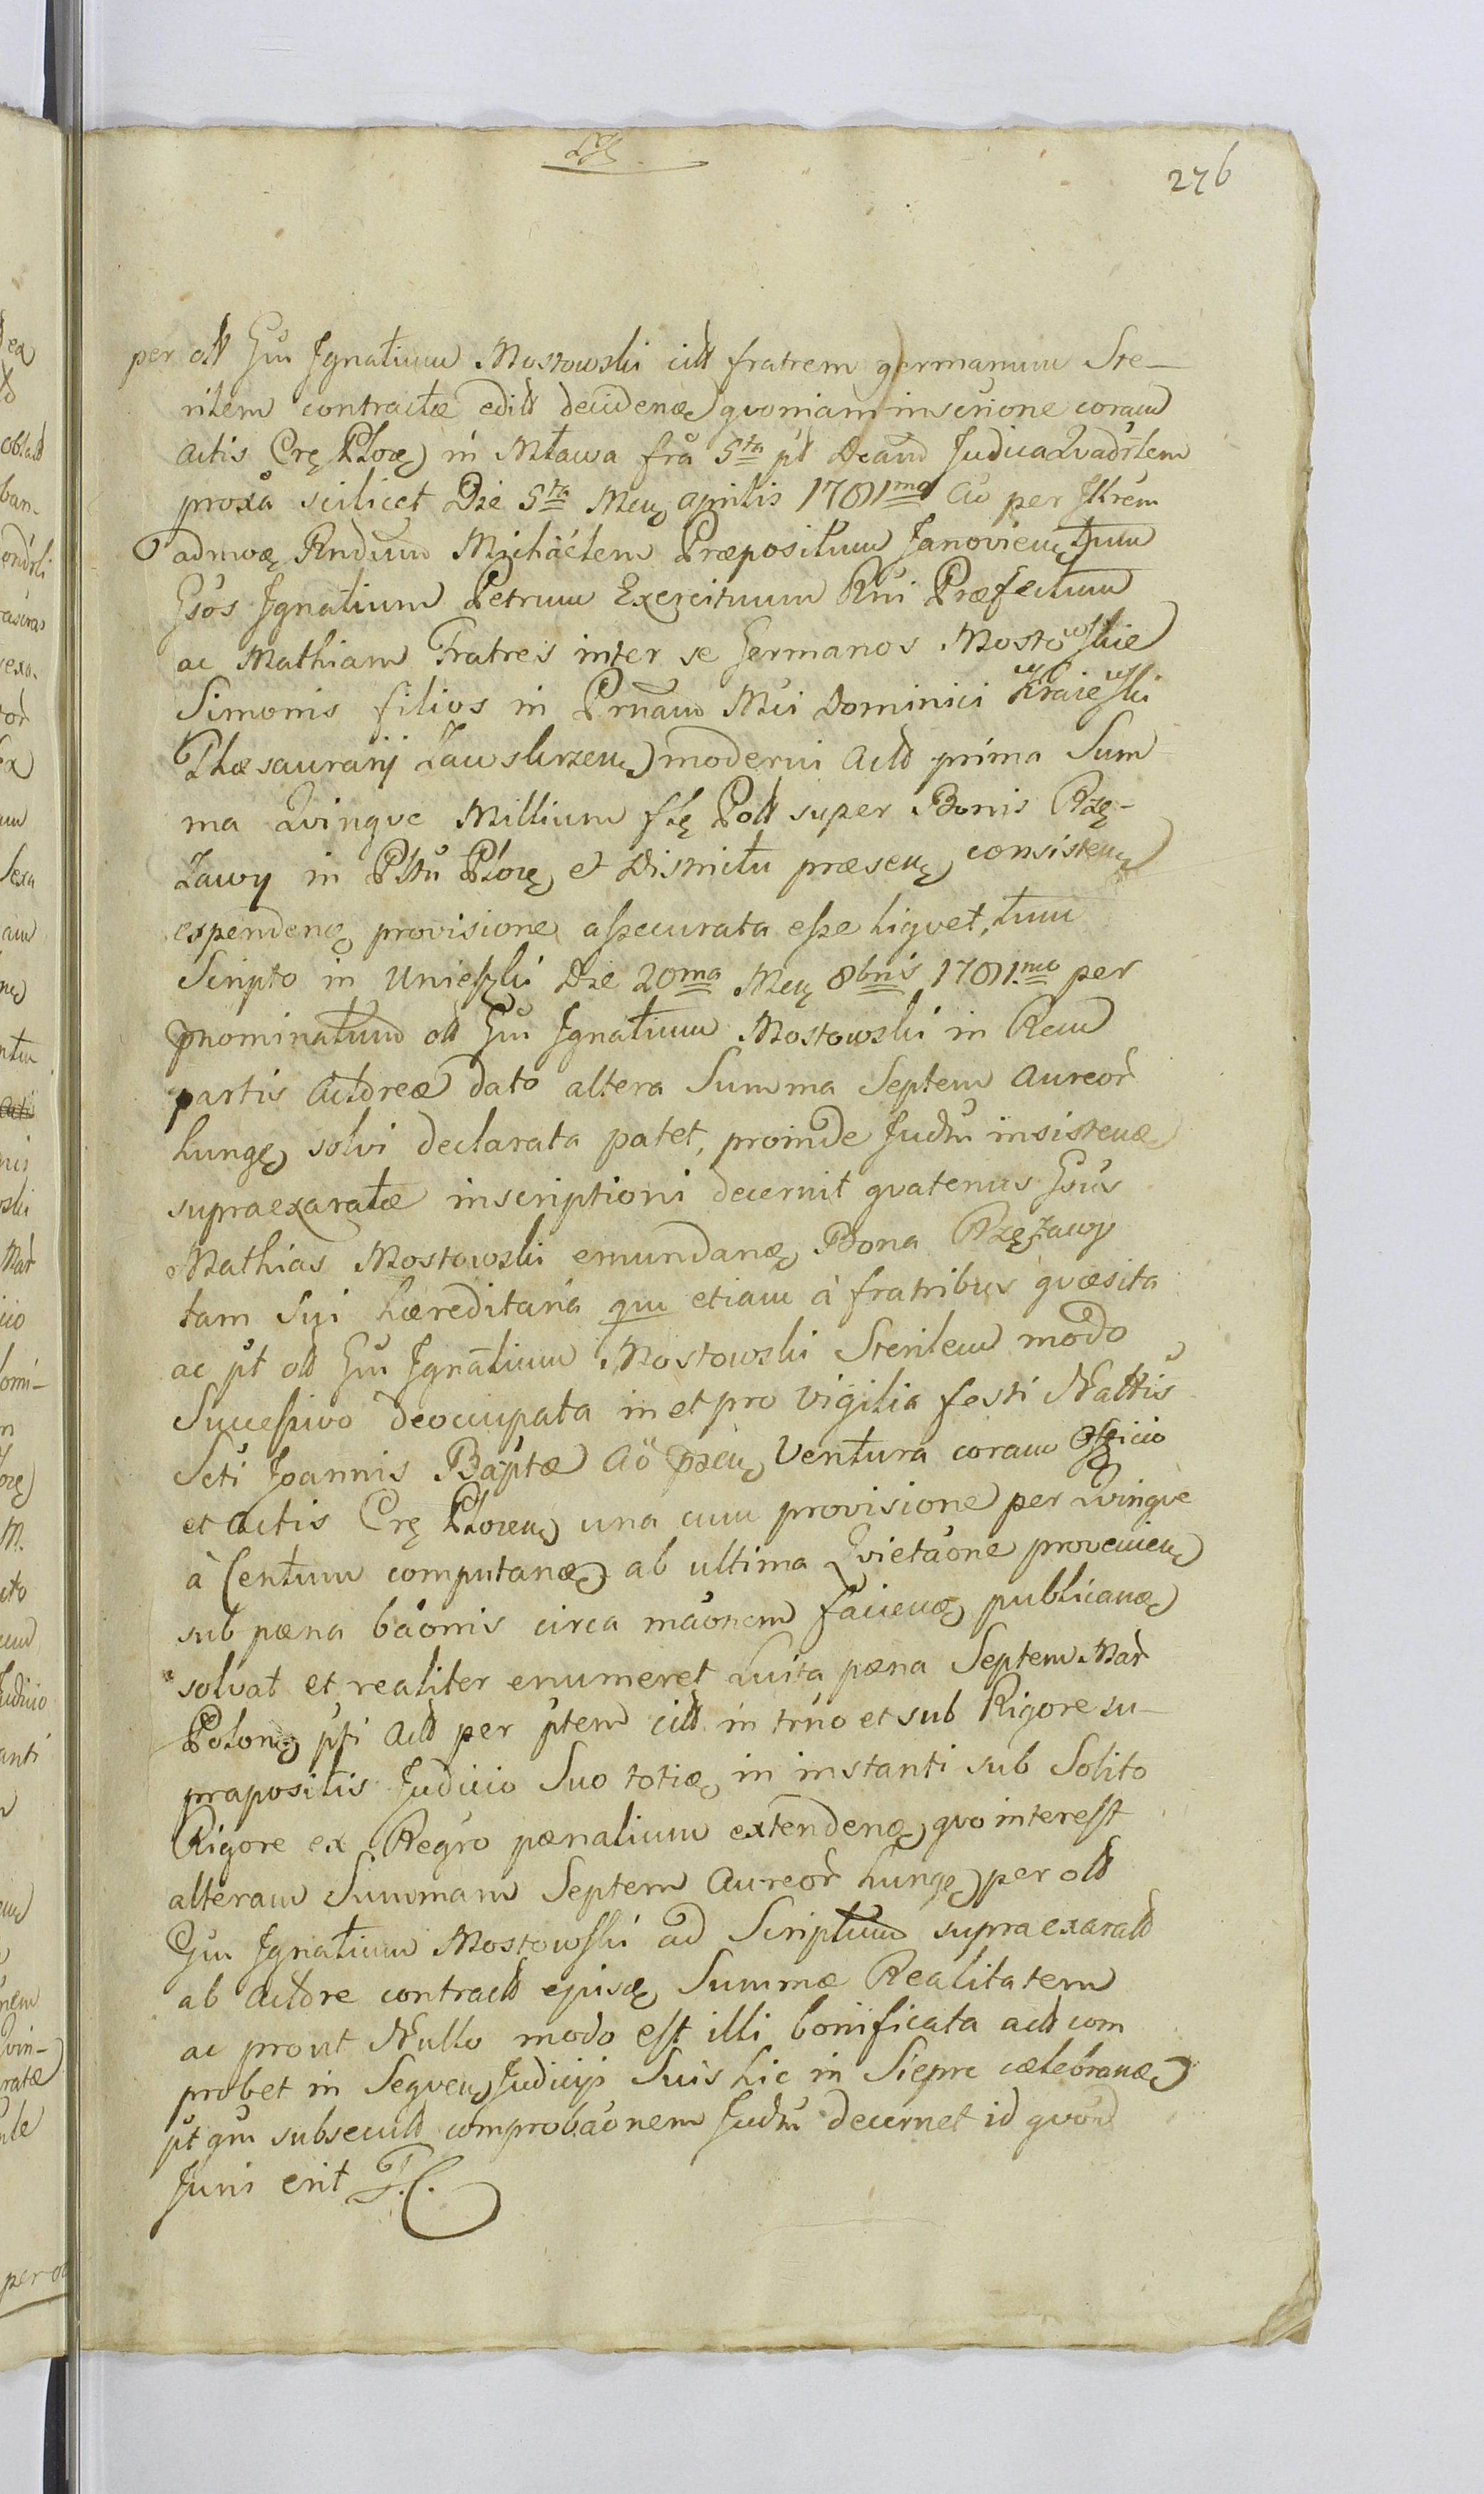 276
per olt Gm Ignatium Mostowski citt fratrem germanum Ste-
rilem contractæ editt decidenæ quoniam inscrione coram
Actis Crę Ploę in Mława fra 5ta pt Dcam Judica Quadrlem
proxa scilicet Die 5ta Meų Aprilis 1781mo Ao per Illrem
admoę Rndum Michaëlem Præpositum Janovieų tum
Gsos Ignatium Petrum Exercituum Rni Præfectum
ac Mathiam Fratres inter se Germanos Mostowskie
Simonis filios in Prnam Mci Dominici Kraiewski
Thæsaurarij Zawskrzeų moderni Actt prima Sum
ma Quinque Millium flę Poll super Bonis Rzę-
Zawy in Pltu Plorę et Districtu præseų consisteų
expendenę provisione assecurata esse liqvet, tum
Scripto in Unieszki Die 20ma Meų 8bris 1781mo per
pnominatum olt Gm Ignatium Mostowski in Rem
partis Actoreæ dato altera Summa Septem Aureor
hungę solvi declarata patet, proinde Judm insistenæ
supraexaratæ inscriptioni decernit qvatenus Gsus
Mathias Mostowski emundanę Bona Rzęzawy
tam sui hæreditaria qm etiam à fratribus qvæsita
ac pt olt Gm Ignatium Mostowski Sterilem modo
Successivo deoccupata in et pro vigilia festi Nattis
Scti Joannis Baptæ Ao pseų Ventura coram Officio
et Actis Crę Ploceų una cum provisione per Qvinqve
à Centum computanę ab ultima Qvietaone provenieų
sub pæna baonis circa maonem facienę publicanę
solvat et realiter enumeret Luita pæna Septem Mar
Polonę pti Actt per ptem citt in trno et sub Rigore su-
prapositis Judicio Suo totię in instanti sub Solito
Rigore ex Regro pænalium extendenę qvo interest
alteram Summam Septem Aureor hungę per olt
Gm Ignatium Mostowski ad Scriptum supraexaratt
ab Actore contractt ejusdę Summæ Realitatem
ac prout Nullo modo est illi bonificata actt com
probet in Seqveų Judicijs Suis hic in Sieprc cælebranę
pt qm subsecutt comprobaonem Judm decernet id qvod
Juris erit P.C.